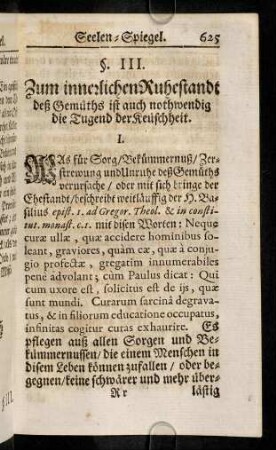 Seelen-Spiegel. 625
§. III.
Zum innerlichen Ruhestandt
deß Gemüths ist auch nothwendig
die Tugend der Keüschheit.
I.
WAs für Sorg/Bekümmernuß/Zer-
strewung und Unruhe deß Gemüths
verursache/ oder mit sich bringe der
Ehestandt/beschreibt weitläuffig der H. Ba-
silius epist. 1. ad Gregor. Theol. & in consti-
tut. monast. c. 1. mit disen Worten: Neque
curæ ullæ , quæ accidere hominibus fo-
leant, graviores, quàm eæ, quæ à conju-
gio profectæ , gregatim innumerabiles
pene advolant; cùm Paulus dicat: Qui
cum uxore est, solicitus est de ijs , quæ
sunt mundi. Curarum sarcinâ degrava-
tus, & in filiorum educatione occupatus,
infinitas cogitur curas exhaurire. Es
pflegen auß allen Sorgen und Be-
kümmernussen/ die einem Menschen in
disem Leben können zufallen / oder be-
gegnen/keine schwärer und mehr über-
Rr lästig